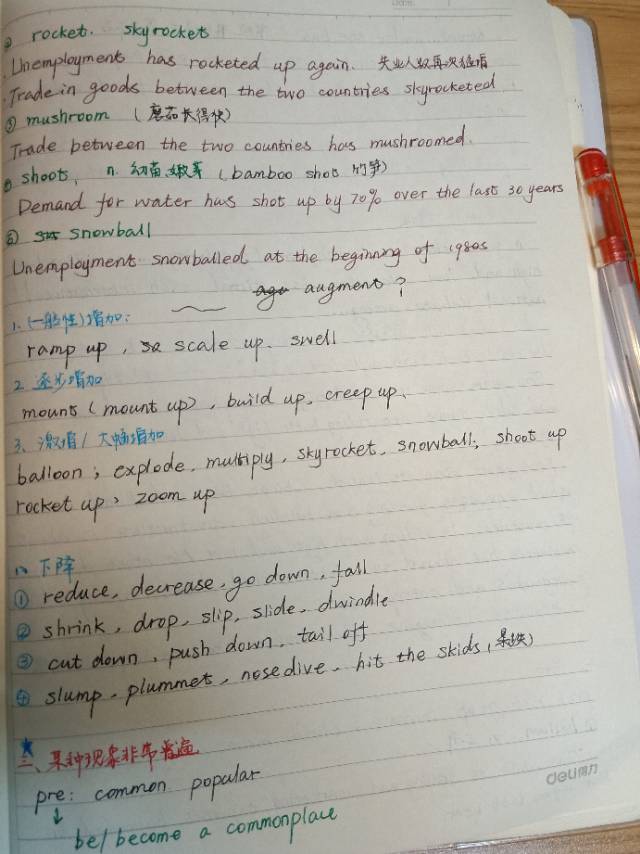 ② rocket. skyrocket
Unemployment has rocketed up again. 失业人数再次猛增
Trade in goods between the two countries skyrocketed
③ mushroom (蘑菇长得快)
Trade between the two countries has mushroomed.
shoots, n. 幼苗 嫩芽 (bamboo shot 竹笋)
Demand for water has shot up by 70% over the last 30 years
snowball
Unemployment snowballed at the beginning of 1980s
augment?
1. (一般性)增加:
ramp up, scale up. swell
2. 逐步增加
mount (mount up), build up, creep up.
3、激增/大幅增加
balloon; explode, multiply, skyrocket, snowball, shoot up
rocket up, zoom up
八 下降
① reduce, decrease, go down, fall
② shrink, drop, slip, slide, dwindle
③ cut down, push down, tail off
④ slump, plummet, nosedive, hit the skids, (暴跌)
三、某种现象非常普遍
pre: common popular
↓
be/become a commonplace
deli得力